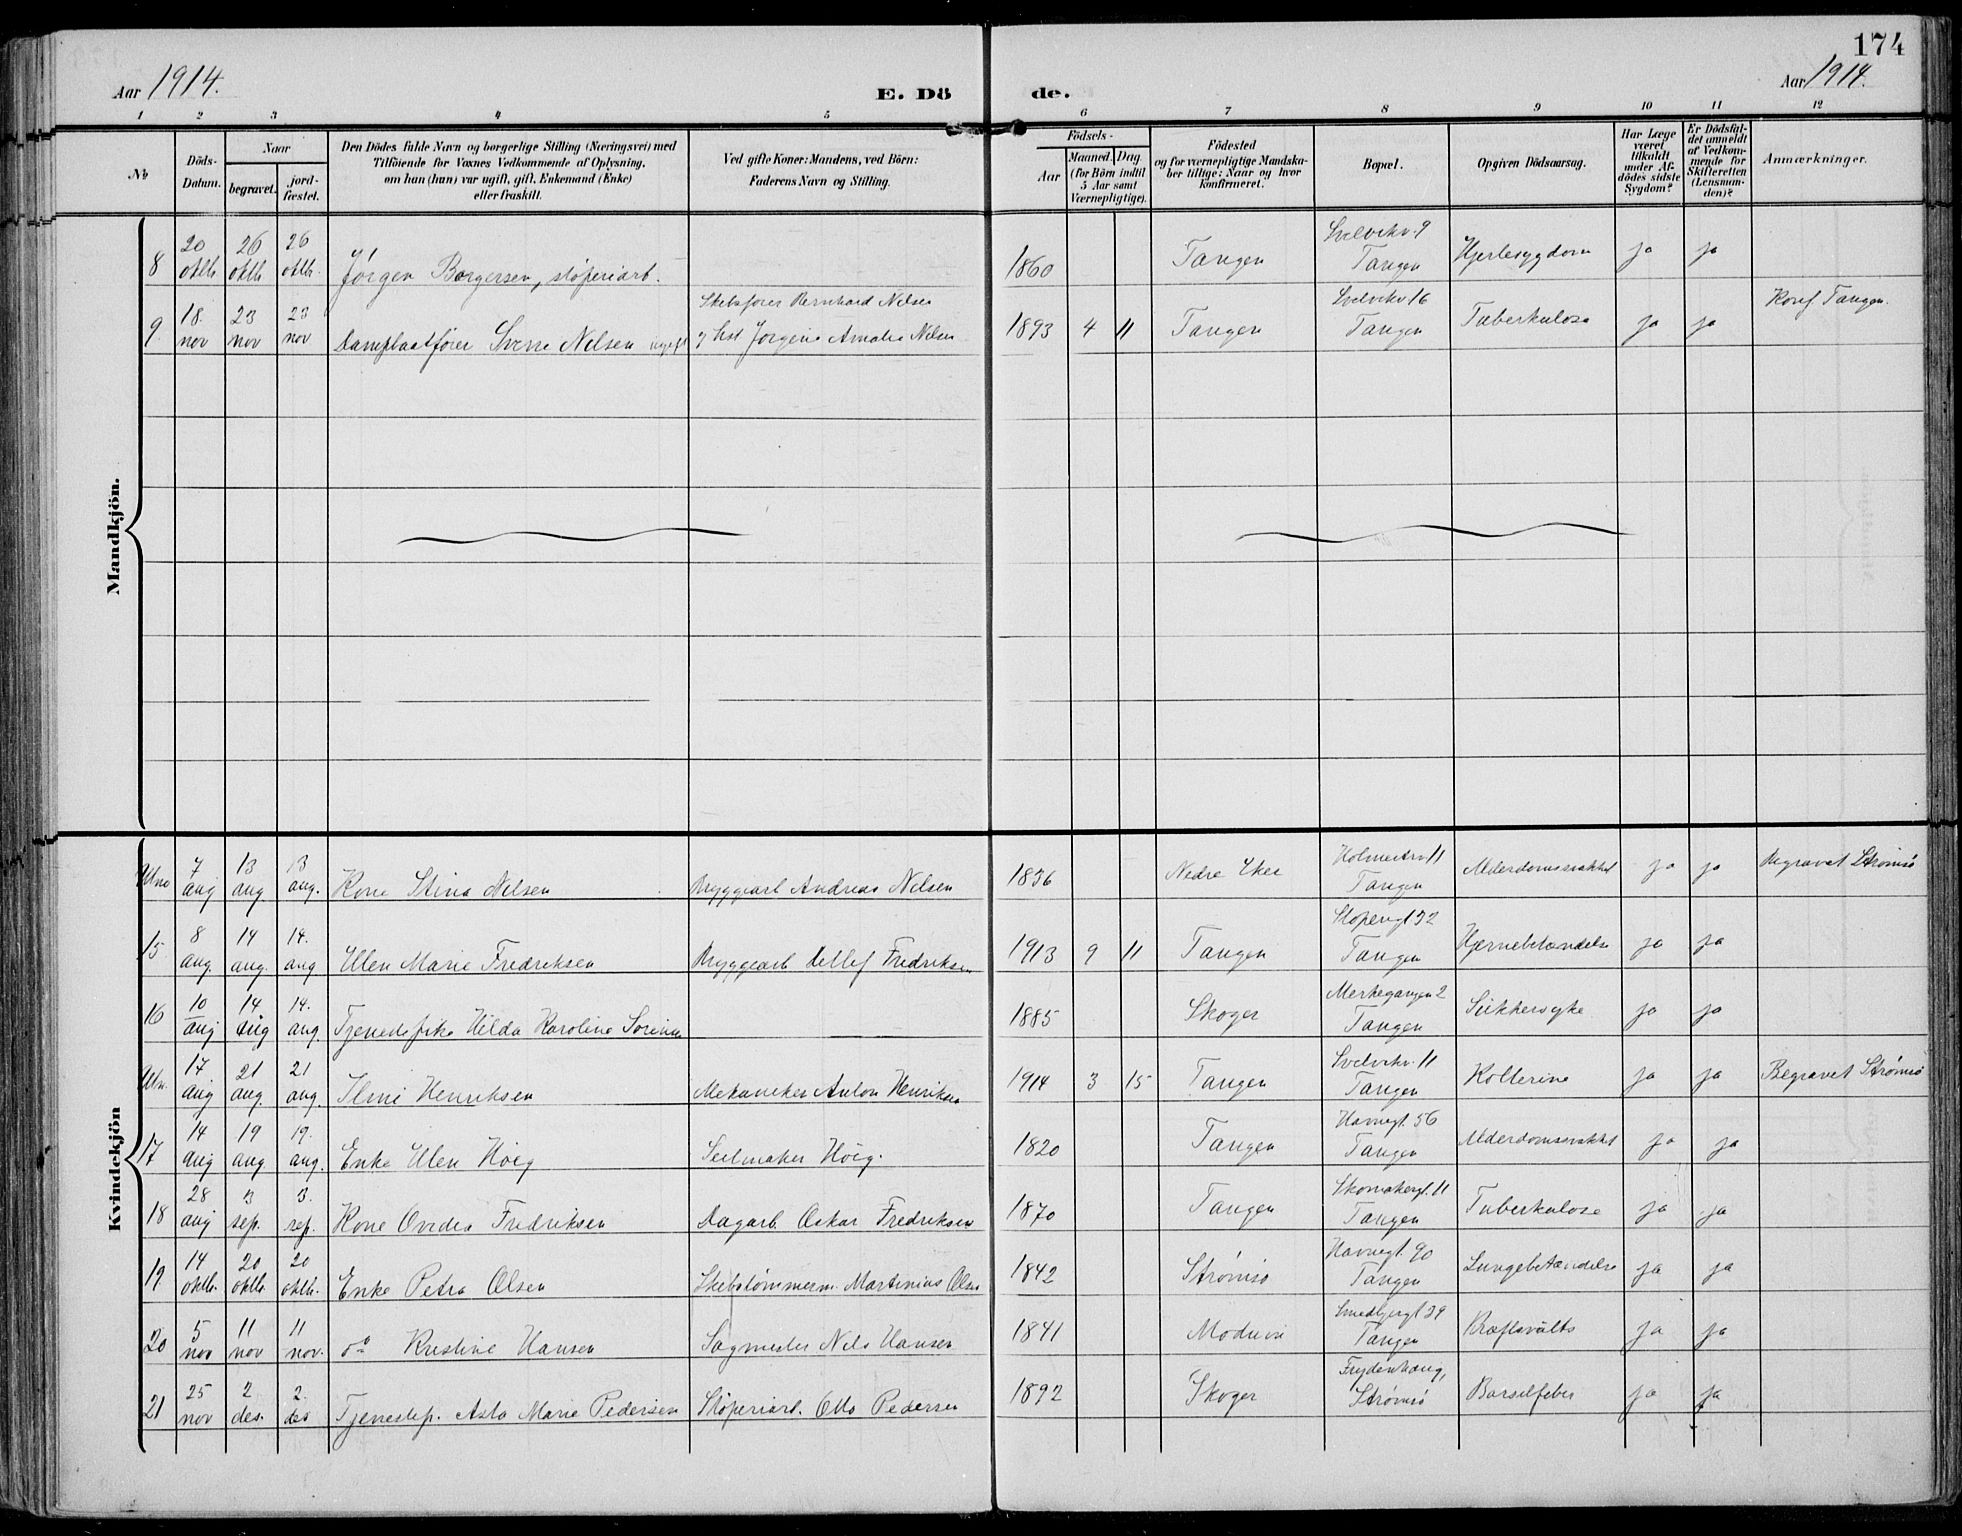 174
Aar 1914.
E. Döde.
Aar 1914.
1 2 3 4 5 6 7 8 9 10 11 12
No
Döds-Datum.
Naar
begravet.
jord-fæstet.
Den Dödes fulde Navn og borgerlige Stilling (Næringsvei) med
Tilföiende for Voxnes Vedkommende af Oplysning,
om han (hun) var ugift, gift, Enkemand (Enke)
eller fraskilt.
Ved gifte Koner: Mandens, ved Börn:
Faderens Navn og Stilling.
Födsels-
Aar
Maaned. Dag
(for Börn indtil
5 Aar samt
Værnepligtige).
Födested
og for værnepligtige Mandska-
ber tillige: Naar og hvor
konfirmeret.
Bopæl.
Opgiven Dödsaarsag.
Har Læge
været
tilkaldt
under Af-
dödes sidste
Sygdom?
Er Dödsfal-
det anmeldt
af Vedkom-
mende for
Skifteretten
(Lensman-
den)?
Anmærkninger.
Mandkjön.
8 20 oktb. 26 oktb. 26 oktb. Jørgen Borgersen, støperiarb. 1860 Tangen Svelvikv. 9 Tangen Hjertesygdom ja ja
9 18. nov 23 nov 23 nov Dampbaatfører Sverre Nilsen ugift Skibsfører Bernhard Nilsen og Hst Jørgine Amalie Nilsen 1893 4 11 Tangen Svelvikv 16 Tangen Tuberkulose ja ja Konf Tangen.
Kvindekjön
7 aug 13 aug 13 aug. Kone Stina Nilsen Bryggearb Andreas Nilsen 1836 Nedre Eker Holmestrv 11 Tangen Alderdomssvakhet ja ja Begravet Strømsø
15 8 aug. 14 aug. 14. aug Ellen Marie Fredriksen Bryggearb Detlef Fredriksen 1913 9 11 Tangen Støpengt 32 Tangen Hjernebetændelse ja ja
16 10 aug 14. aug 14. aug. Tjenestepike Hilda Karoline 1885 Skoger Merkegangen 2 Tangen Sukkersyke ja ja
17 aug 21 aug. 21 aug. Henriksen Mekaniker Anton Henriksen 1914 3 15 Tangen Svelvikv. 11 Tangen Kollerine ja ja Begravet Strømsø
17 14 aug 19 aug 19. aug. Enke Ellen Høeg Seilmaker Høeg. 1820 Tangen Havnegt. 56 Tangen Alderdomssvakhet ja ja
18 28 aug 3 sep. 3. sep. Kone Ovidia Fredriksen Dagarb Oskar Fredriksen 1870 Tangen Skomakergt. 11 Tangen Tuberkulose ja ja
19 14 oktb. 20 oktb. 20 oktb. Enke Petra Olsen Skibstømmerm. Martinius Olsen 1842 Strømsø Havnegt. 90 Tangen Lungebetændelse ja ja
20 5 nov 11 nov 11 nov. do Kristine Hansen Sagmester Nils Hansen 1841 Modum Smedbjergt 39 Tangen ja ja
21 25 nov 2 des. 2. des Tjenestep. Asta Marie Pedersen Støperiarb. Otto Pedersen 1892 Skoger Frydenhaug, Strømsø Barselfeber ja ja